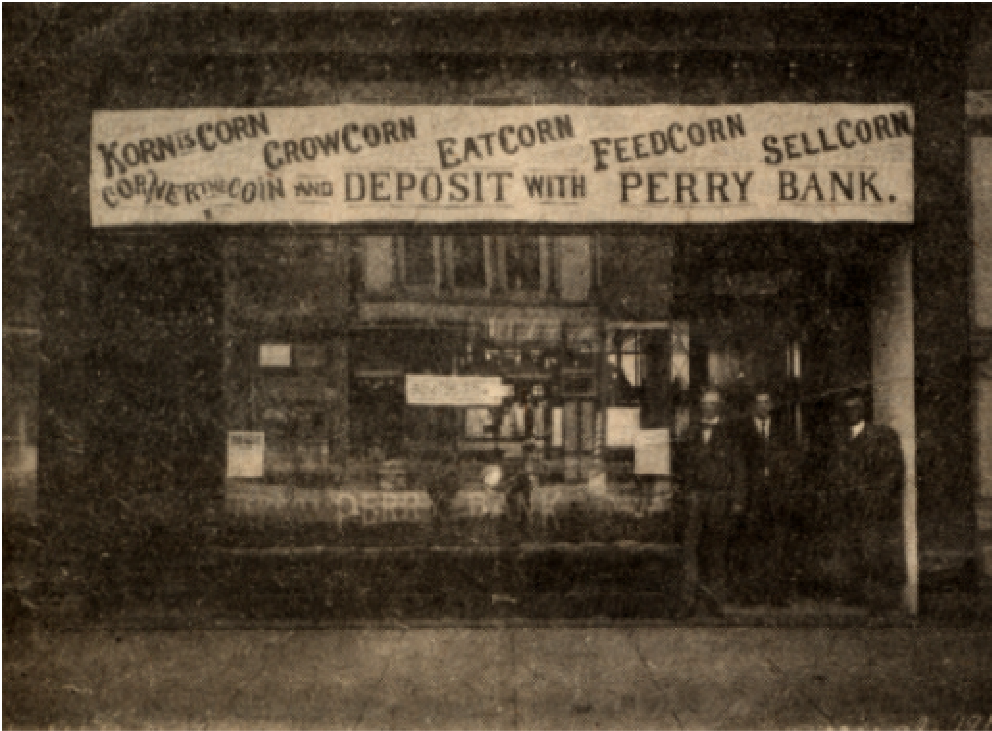 KORN IS CORN CROW CORN EAT CORN FEED CORN SELL CORN
CORNER THE COIN AND DEPOSIT WITH PERRY BANK.
PERRY BANK